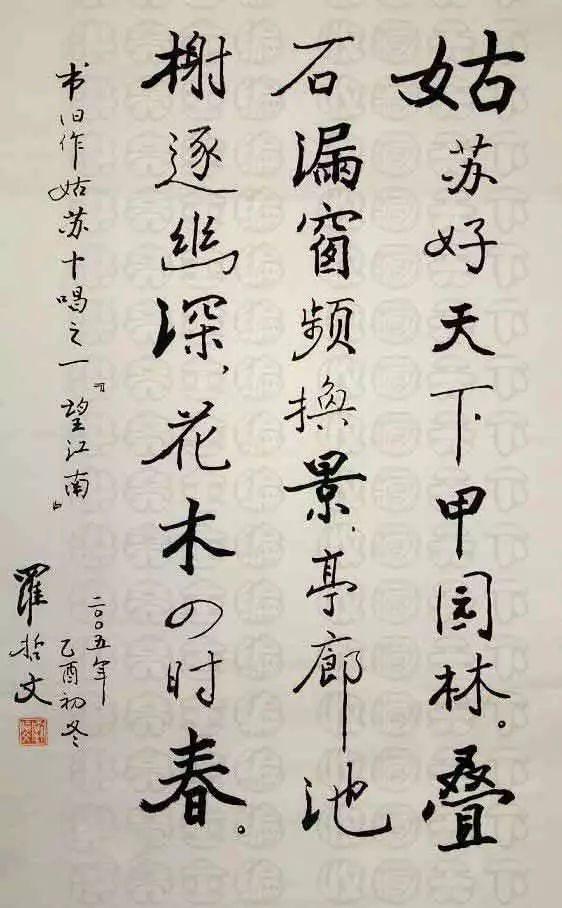 姑苏好天下甲园林。叠
石漏窗频换景，亭廊池
榭逐幽深，花木の时春。
书旧作姑苏十唱之一『望江南』
二〇〇五年
乙酉初冬
罗哲文